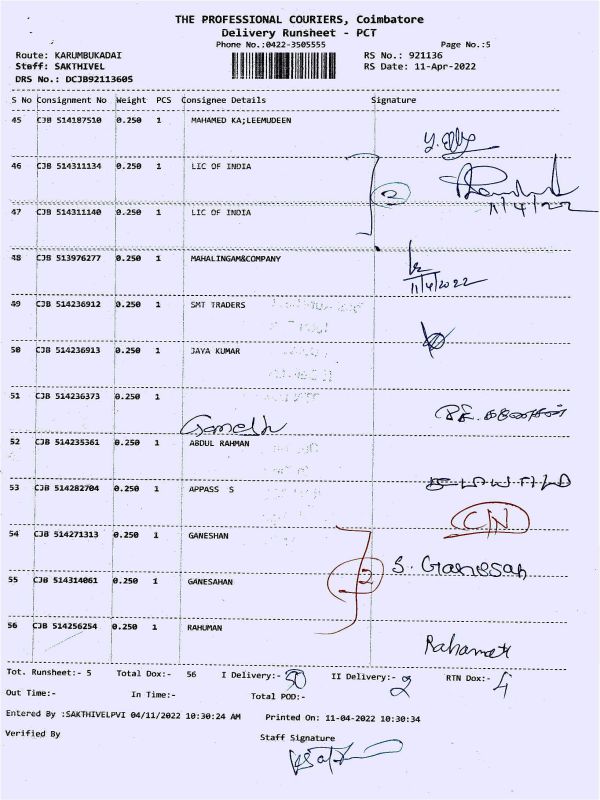 THE PROFESSIONAL COURIERS, Coimbatore
Delivery Runsheet - PCT
Phone No.:0422-3505555 Page No.:5
Route: KARUMBUKADAI RS No.: 921136
Staff: SAKTHIVEL RS Date: 11-Apr-2022
DRS No.: DCJB92113605
S No Consignment No Weight PCS Consignee Details Signature
45 CJB 514187510 0.250 1 MAHAMED KA;LEEMUDEEN
46 CJB 514311134 0.250 1 LIC OF INDIA
2
11/4/22
47 CJB 514311140 0.250 1 LIC OF INDIA
48 CJB 513976277 0.250 1 MAHALINGAM&COMPANY
11/4/2022
49 CJB 514236912 0.250 1 SMT TRADERS
50 CJB 514236913 0.250 1 JAYA KUMAR
51 CJB 514236373 0.250 1
Ganesh
52 CJB 514235361 0.250 1 ABDUL RAHMAN
53 CJB 514282704 0.250 1 APPASS S
C/N
54 CJB 514271313 0.250 1 GANESHAN
S. Ganesan
2
55 CJB 514314061 0.250 1 GANESAHAN
56 CJB 514256254 0.250 1 RAHUMAN
Tot. Runsheet:- 5 Total Dox:- 56 I Delivery:- 50 II Delivery:- 2 RTN Dox:- 4
Out Time:- In Time:- Total POD:-
Entered By :SAKTHIVELPVI 04/11/2022 10:30:24 AM Printed On: 11-04-2022 10:30:34
Verified By Staff Signature